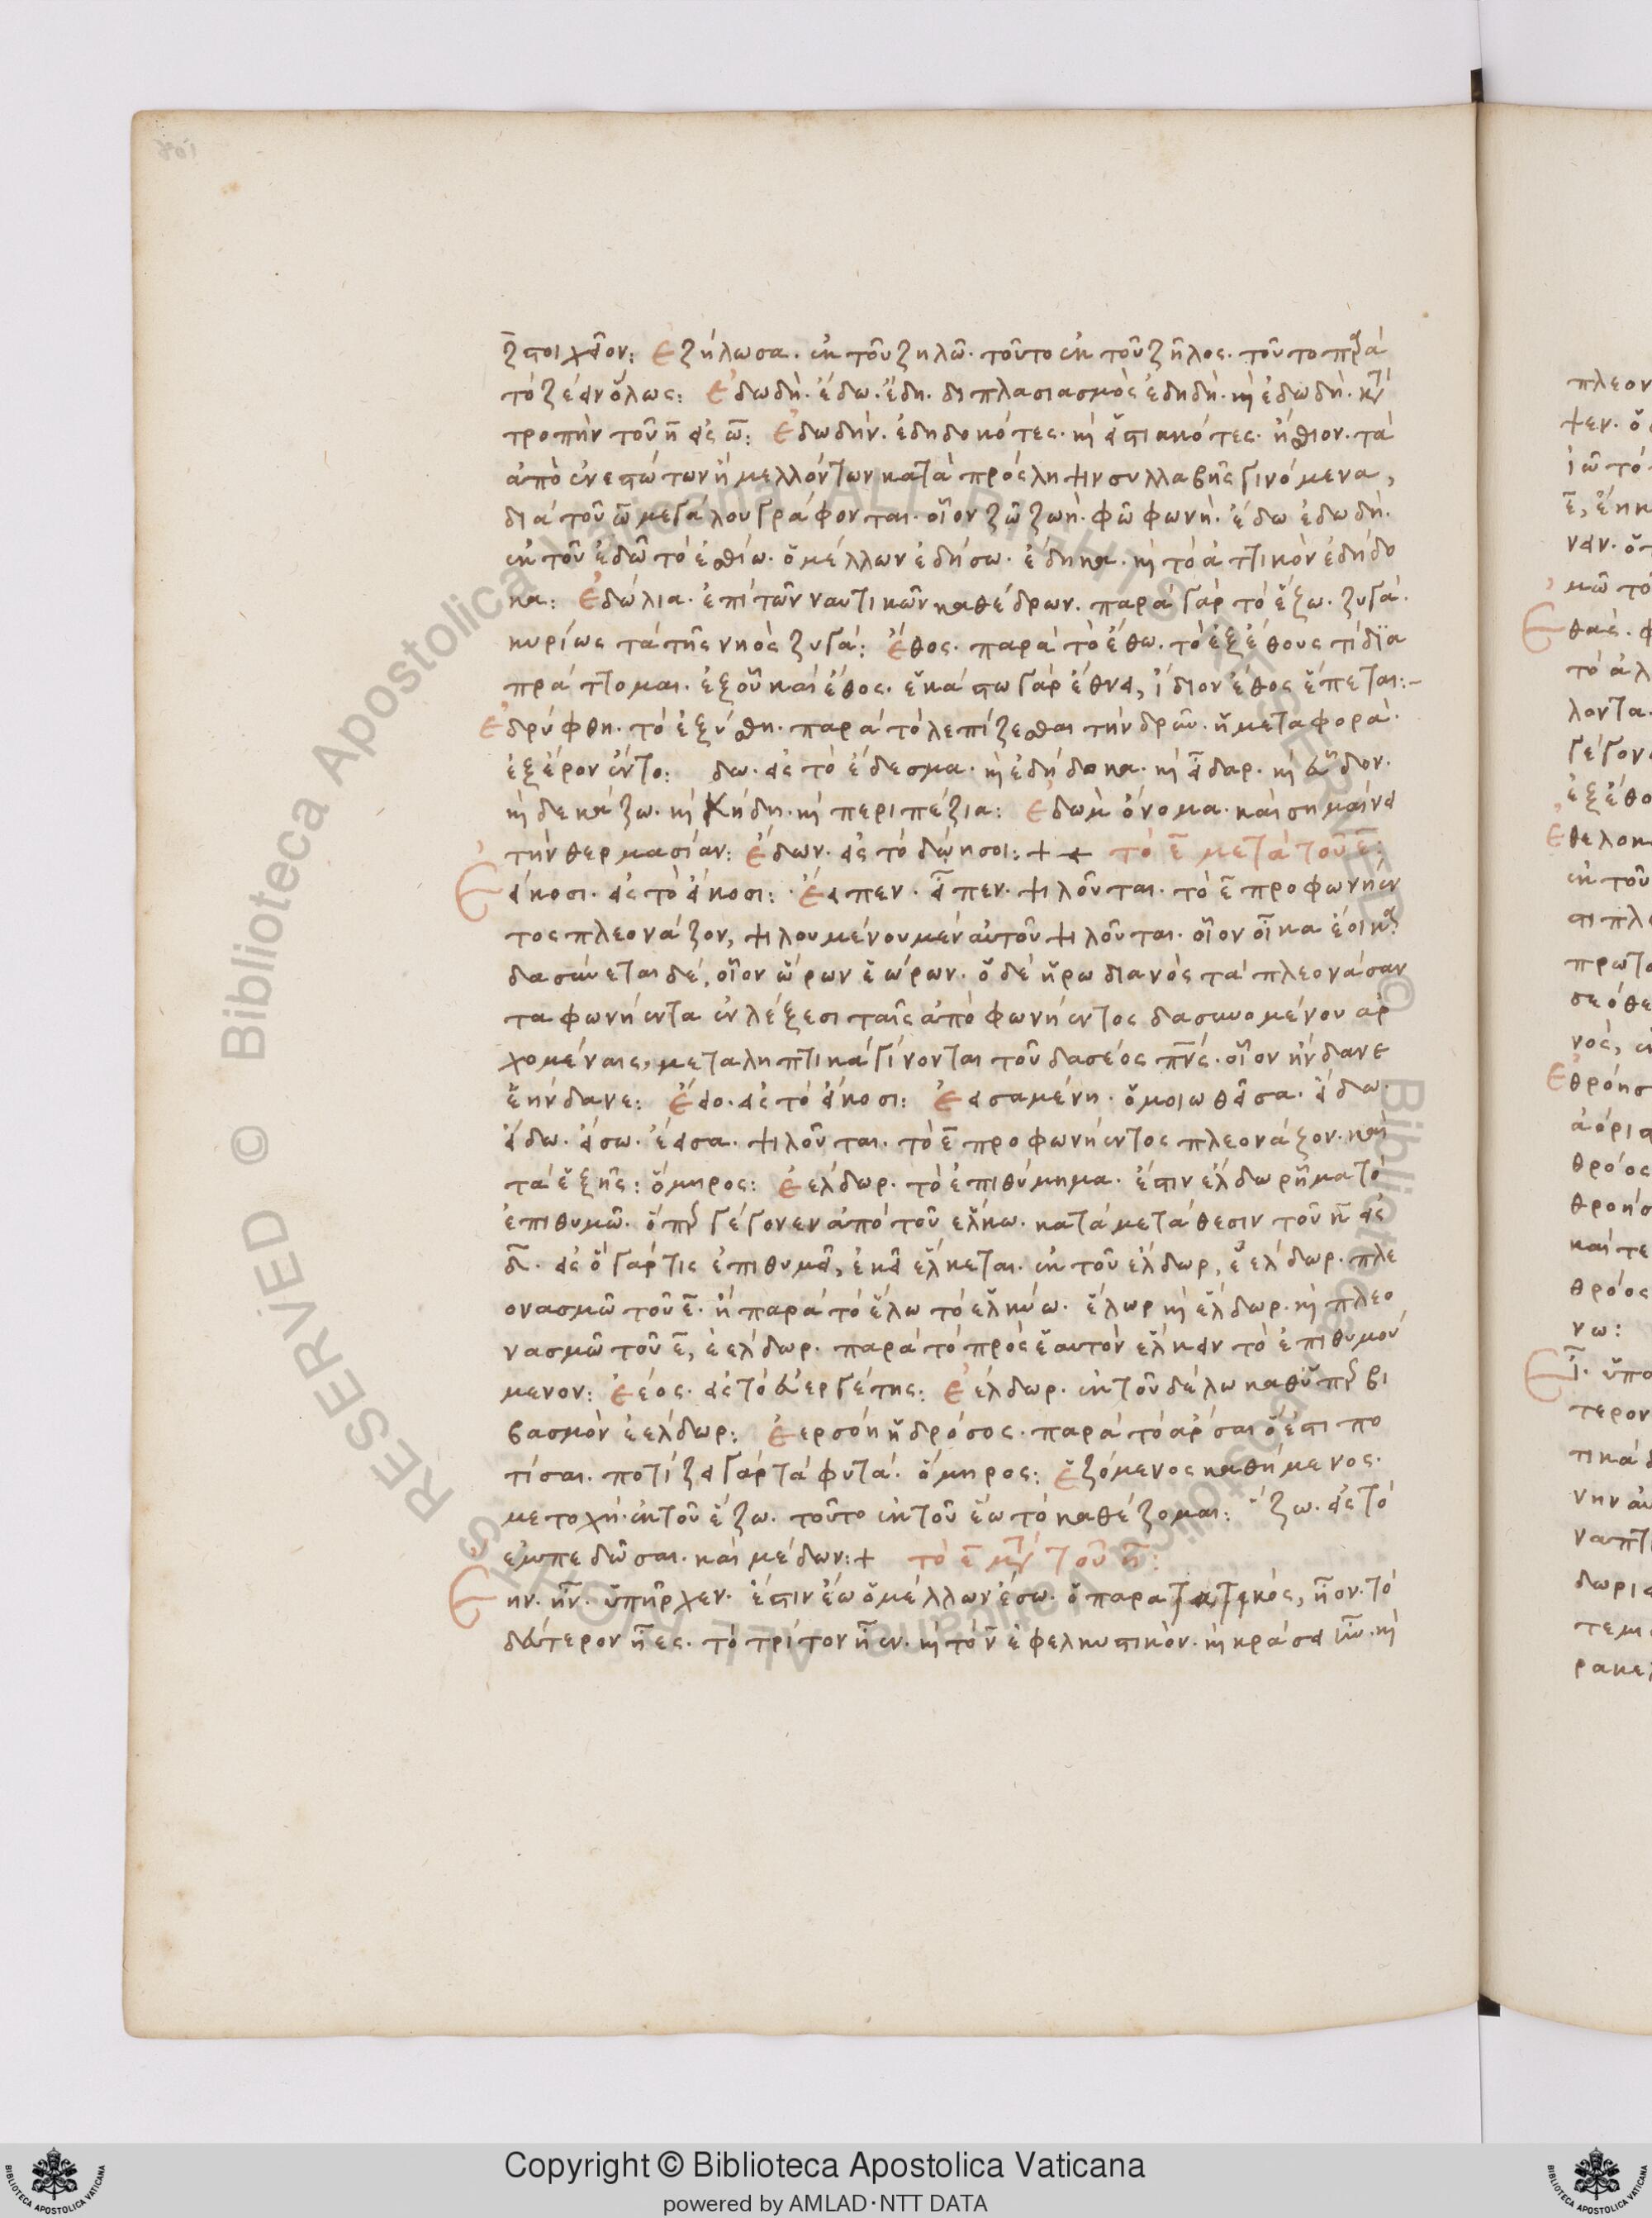 ζ στοιχεῖον: Ἐζήλωσα· ἐκ τοῦ ζηλῶ· τοῦτο ἐκ τοῦ ζῆλος· τοῦτο παρὰ
τὸ ζέειν ὅλως: Ἐδωδή· ἔδω· ἔδη· διπλασιασμὸς ἐδηδή· καὶ ἐδωδή· κατὰ
τροπὴν τοῦ η εἰς ω: Ἐδωδήν· ἐδηδοκότες· καὶ εἱστιακότες· ἤσθιον· τὰ
ἀπὸ ἐνεστώτων ἢ μελλόντων κατὰ πρόσληψιν συλλαβῆς γινόμενα,
διὰ τοῦ ω μεγάλου γράφονται· οἷον ζῶ ζωή· φῶ φωνή· ἔδω ἐδωδή·
ἐκ τοῦ ἐδῶ τὸ ἐσθίω· ὁ μέλλων ἐδήσω· ἔδηκα· καὶ τὸ ἀττικὸν ἐδήδο
κα: Ἐδώλια· ἐπὶ τῶν ναυτικῶν καθέδρων· παρὰ γὰρ τὸ ἕξω· ζυγά·
κυρίως τὰ τῆς νηὸς ζυγά: Ἔθος· παρὰ τὸ ἔθω· τὸ ἐξ ἔθους τι δια
πράττομαι· ἐξ οὗ καὶ ἔθος· ἑκάστω γὰρ ἔθνει, ἴδιον ἔθος ἕπεται:-
Ἐδρύφθη· τὸ ἐξύσθη· παρὰ τὸ λεπίζεσθαι τὴν δρῦν· ἡ μεταφορὰ·
ἐξέρον ἐντο: δω· εἰς τὸ ἔδεσμα· καὶ ἐδήδοκα· καὶ εἶδαρ· καὶ εὗδον·
καὶ δεκάζω· καὶ κήδη· καὶ περιπέζια: Ἐδωμ ὄνομα· καὶ σημαίνει
τὴν θερμασίαν: Ἔδων· εἰς τὸ δώησοι: + + τὸ ε μετὰ τοῦ ε:
Ἐείκοσι· εἰς τὸ εἴκοσι: Ἔειπεν· εἶπεν· ψιλοῦνται· τὸ ε πρὸ φωνήεν
τος πλεονάζον, ψιλουμένου μὲν αὐτοῦ ψιλοῦνται· οἷον οἶκα ἔοικα
δασύνεται δέ, οἷον ὥρων ἑώρων· ὁ δὲ ἡρωδιανὸς τὰ πλεονάσαν
τα φωνήεντα ἐν λέξεσι ταῖς ἀπὸ φωνήεντος δασυνομένου ἀρ
χομέναις, μεταληπτικὰ γίνονται τοῦ δασέος πνς· οἷον ἥνδανε
ἑήνδανε: Ἔειο· εἰς τὸ εἴκοσι: Ἐεισαμένη· ὁμοιωθεῖσα· εἴδω·
εἴδω· εἴσω· ἔεισα· ψιλοῦνται· τὸ ε πρὸ φωνήεντος πλεονάζον· καὶ
τὰ ἑξῆς: ὅμηρος: Ἐέλδωρ· τὸ ἐπιθύμημα· ἔστιν ἔλδω ῥῆμα τὸ
ἐπιθυμῶ· ὅπερ γέγονεν ἀπὸ τοῦ ἕλκω· κατὰ μετάθεσιν τοῦ κ εἰς
δ· εἰς ὃ γάρ τις ἐπιθυμεῖ, ἐκεῖ ἕλκεται· ἐκ τοῦ ἔλδωρ, ἐέλδωρ· πλε
ονασμῷ τοῦ ε· ἢ παρὰ τὸ ἕλω τὸ ἑλκύω· ἕλωρ καὶ ἕλδωρ· καὶ πλεο
νασμῷ τοῦ ε, ἐέλδωρ· παρὰ τὸ πρὸς ἑαυτὸν ἕλκειν τὸ ἐπιθυμού
μενον: Ἐέος· εἰς τὸ εὐεργέτης: Ἐέλδωρ· ἐκ τοῦ δέλω καθ' ὑπερβι
βασμὸν ἐέλδωρ: Ἐερσόη ἡ δρόσος· παρὰ τὸ ἀρσαι ὅ ἐστι πο
τίσαι· ποτίζει γὰρ τὰ φυτά· ὅμηρος: Ἑζόμενος καθήμενος·
μετοχή· ἐκ τοῦ ἕζω· τοῦτο ἐκ τοῦ ἕω τὸ καθέζομαι: ζω· εἰς τὸ
ἐμπεδῶσαι· καὶ μέδων: + τὸ ε μετὰ τοῦ η:
Ἔην· ἦν· ὑπῆρχεν· ἔστιν ἔω ὁ μέλλων ἔσω· ὁ παρατατικὸς, ἦον· τὸ
δεύτερον ἦες· τὸ τρίτον ἦεν· καὶ τὸ ν ἐφελκυστικὸν· καὶ κράσει ἦν· καὶ